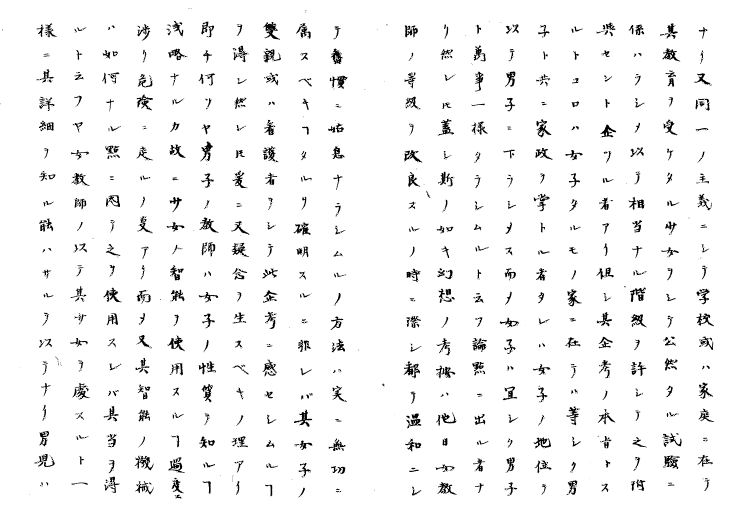 ナリ又同一ノ主義ニシテ学校或ハ家庭ニ在テ
其教育ヲ受ケタル少女ヲシテ公然タル試験ニ
係ハラシメ以テ相当ナル階級ヲ許シテ之ヲ附
与セント企ツル者アリ但シ其企考ノ本旨トス
ルトコロハ女子タルモノ家ニ在テハ等シク男
子ト共ニ家政ヲ掌トル者タレハ女子ノ地位ヲ
以テ男子ニ下ラシメス而メ女子ハ宜シク男子
ト萬事一様タラシムルト云フ論點ニ出ル者ナ
リ然レ𪜈蓋シ斯ノ如キ幻想ノ考按ハ他日女教
師ノ等級ヲ改良スルノ時ニ際シ都テ温和ニシ
テ舊慣ニ姑息ナラシムルノ方法ハ実ニ無功ニ
属スヘキヿタルヲ確明スルニ非レバ其女子ノ
雙親或ハ看護者ヲシテ此企考ニ感セシムルヿ
ヲ得ン然レ𪜈爰ニ又疑念ヲ生スベキノ理アリ
即チ何ソヤ男子ノ教師ハ女子ノ性質ヲ知ルヿ
浅略ナルカ故ニ少女ノ智能ヲ使用スルヿ過度ニ
渉リ危険ニ走ルノ憂アリ而メ又其智能ノ機械
ハ如何ナル點ニ因テ之ヲ使用スレバ其当ヲ得
ルト云フヤ女教師ノ以テ其少女ヲ處スルト一
様ニ其詳細ヲ知ル能ハサルヲ以テナリ男児ハ